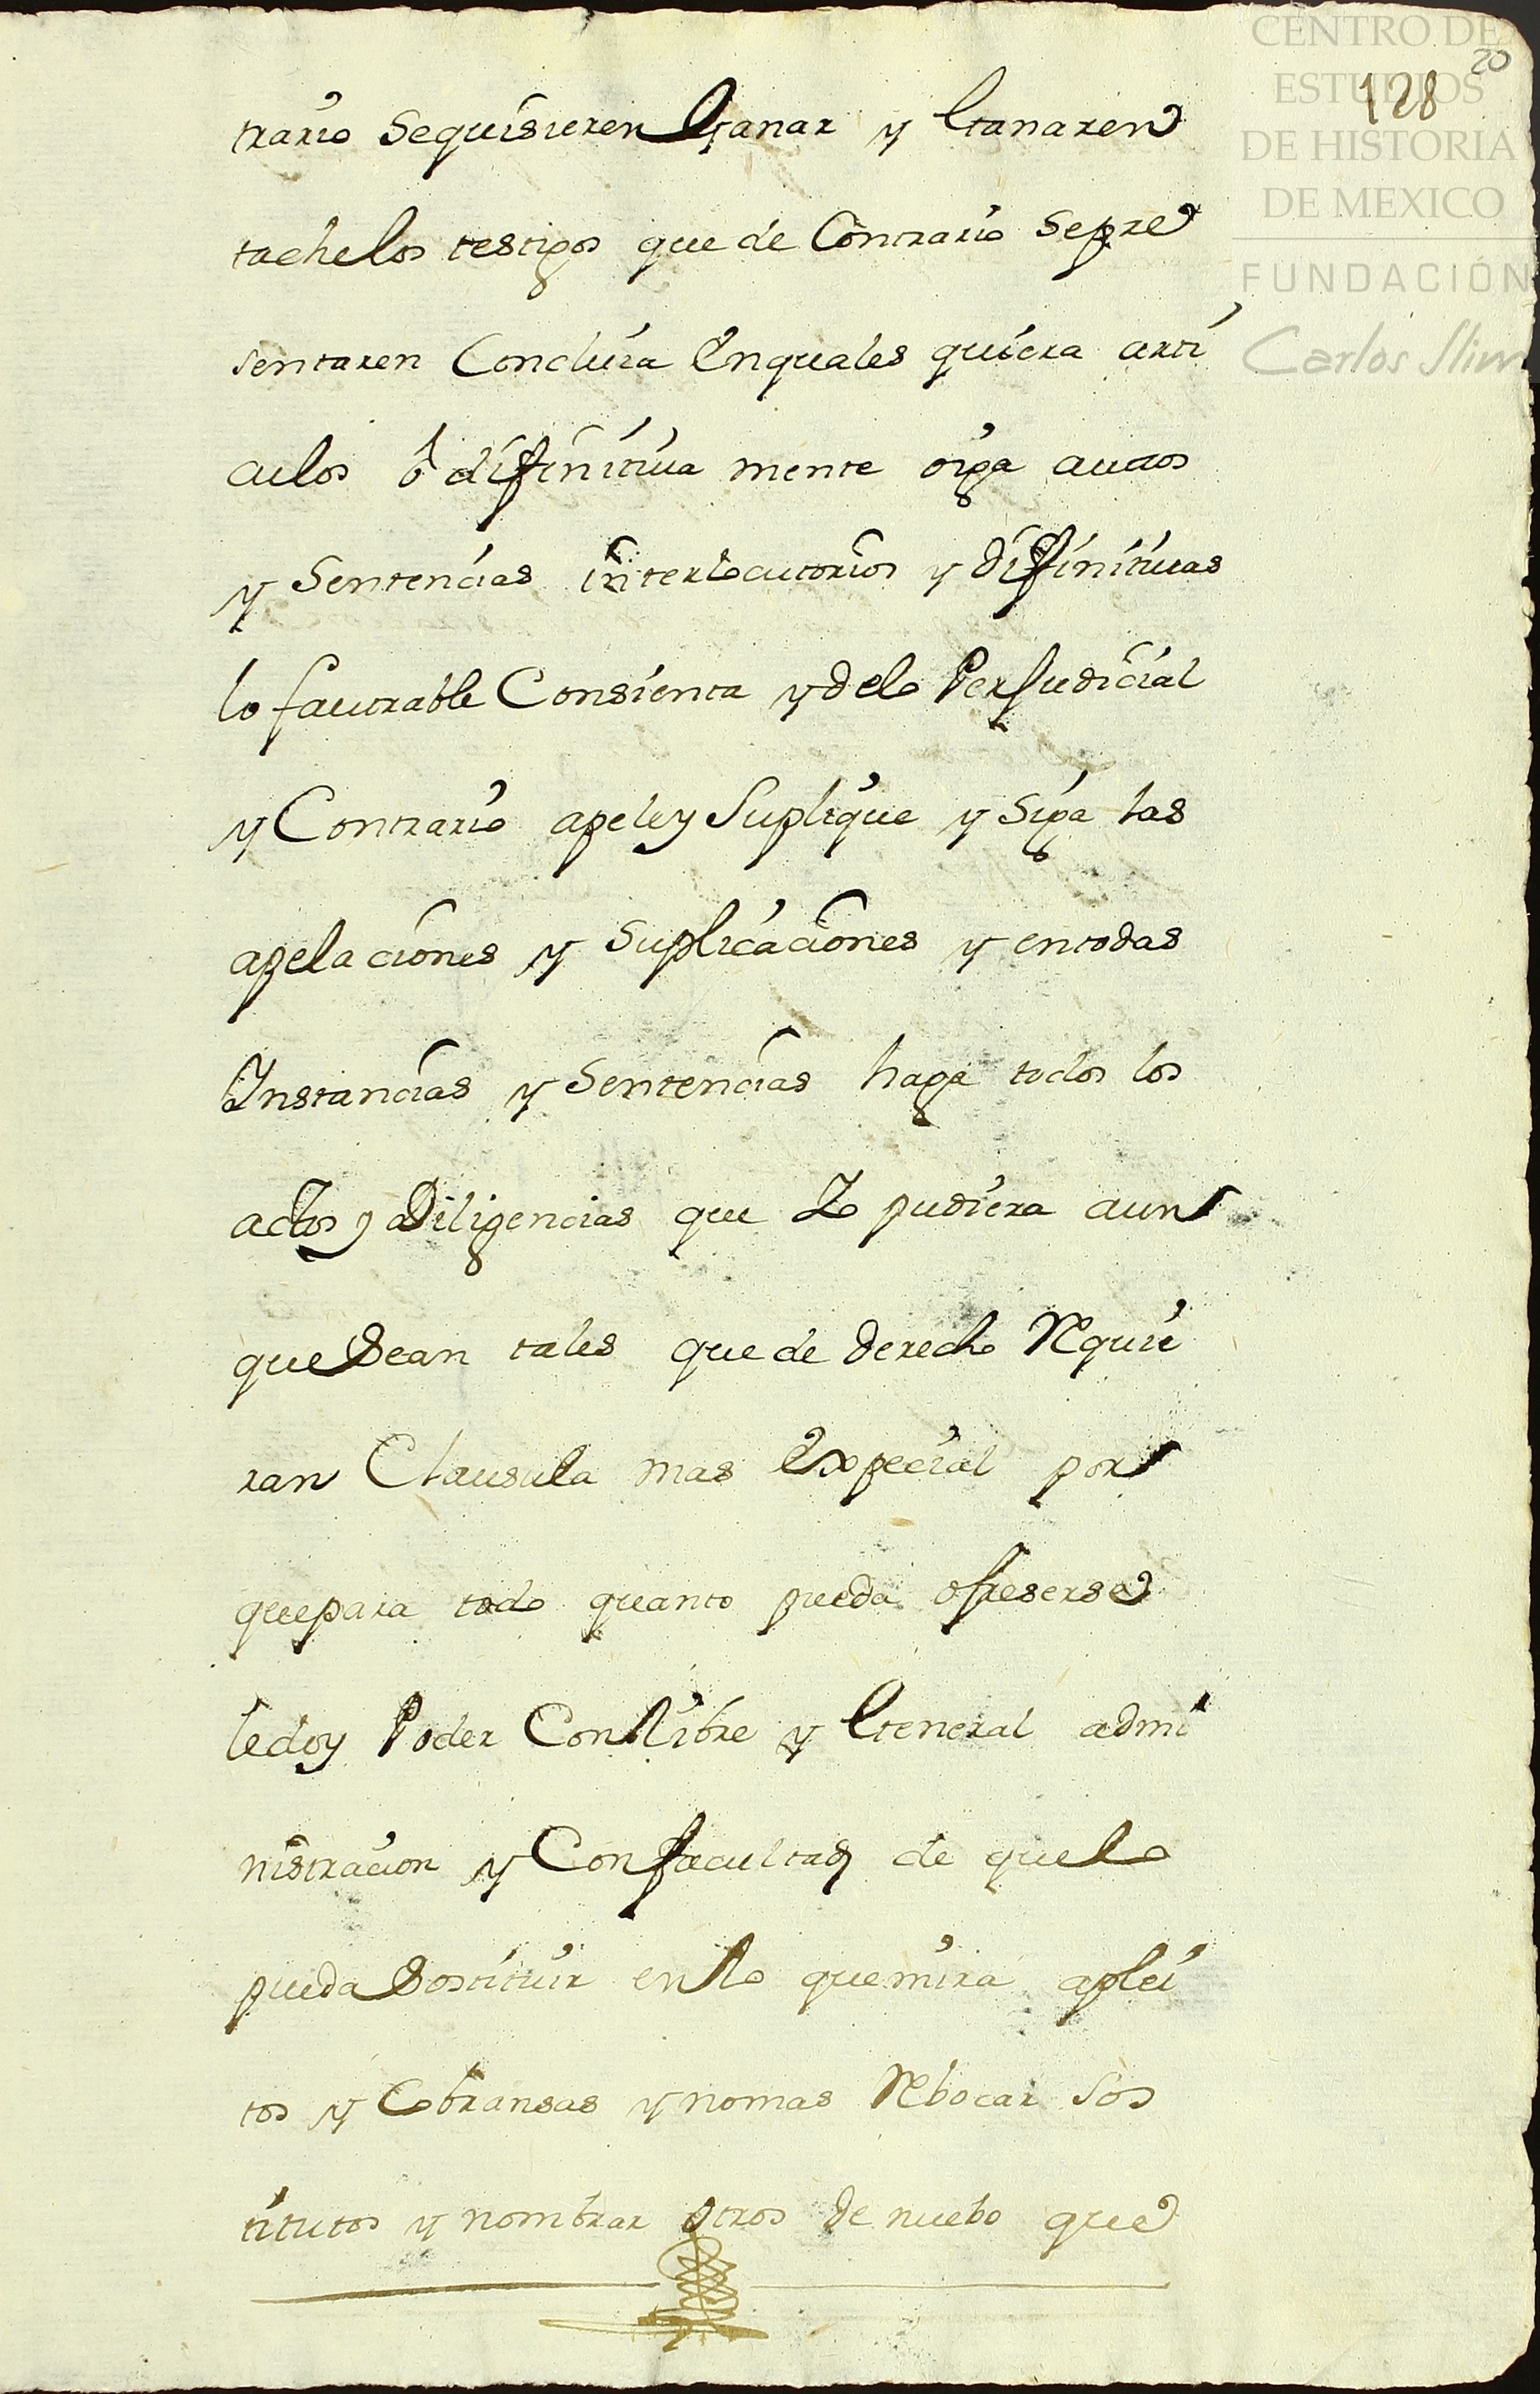 CENTRO DE
ESTUDIOS
DE HISTORIA
DE MEXICO
FUNDACIÓN
Carlos Slim
20
128
trario sequisieren Ganar y Ganaren
tachelos testigos que de Contrario Sepre
sentaren Concluia Enquales quiera arti
culos ó difinitiva mente oiga autos
y Sentencias interlocutorios y difinitivas
lo favorable Consienta y delo Perjudicial
y Contrario apele y Suplique y Siga las
apelaciones y Suplicaciones y entodas
Instancias y Sentencias haga todos los
actos y Diligencias que Yo pudiera aun
que Sean tales que de derecho Requie
ran Clausula mas Expecial por
quepara todo quanto pueda ofreserse
ledoy Poder Con libre y General admi
nistracion y Con facultad de quelo
pueda Sostituir en lo quemira aplei
tos y Cobransas y nomas Rebocar Sos
titutos y nombrar otros de nuebo que